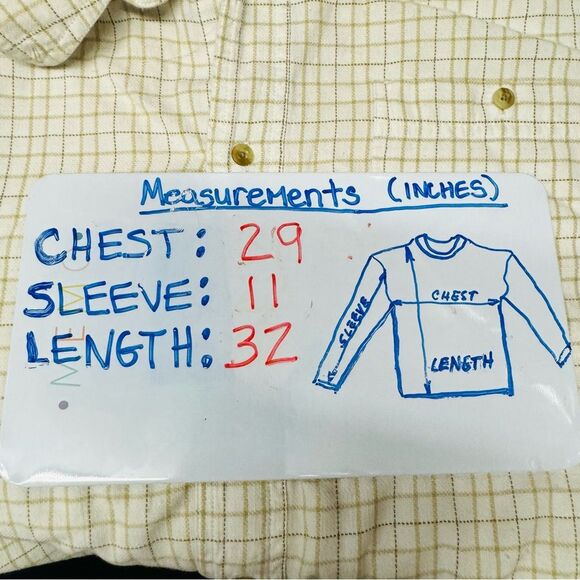 Measurements (INCHES)
CHEST: 29
SLEEVE: 11
LENGTH: 32
CHEST
SLEEVE
LENGTH